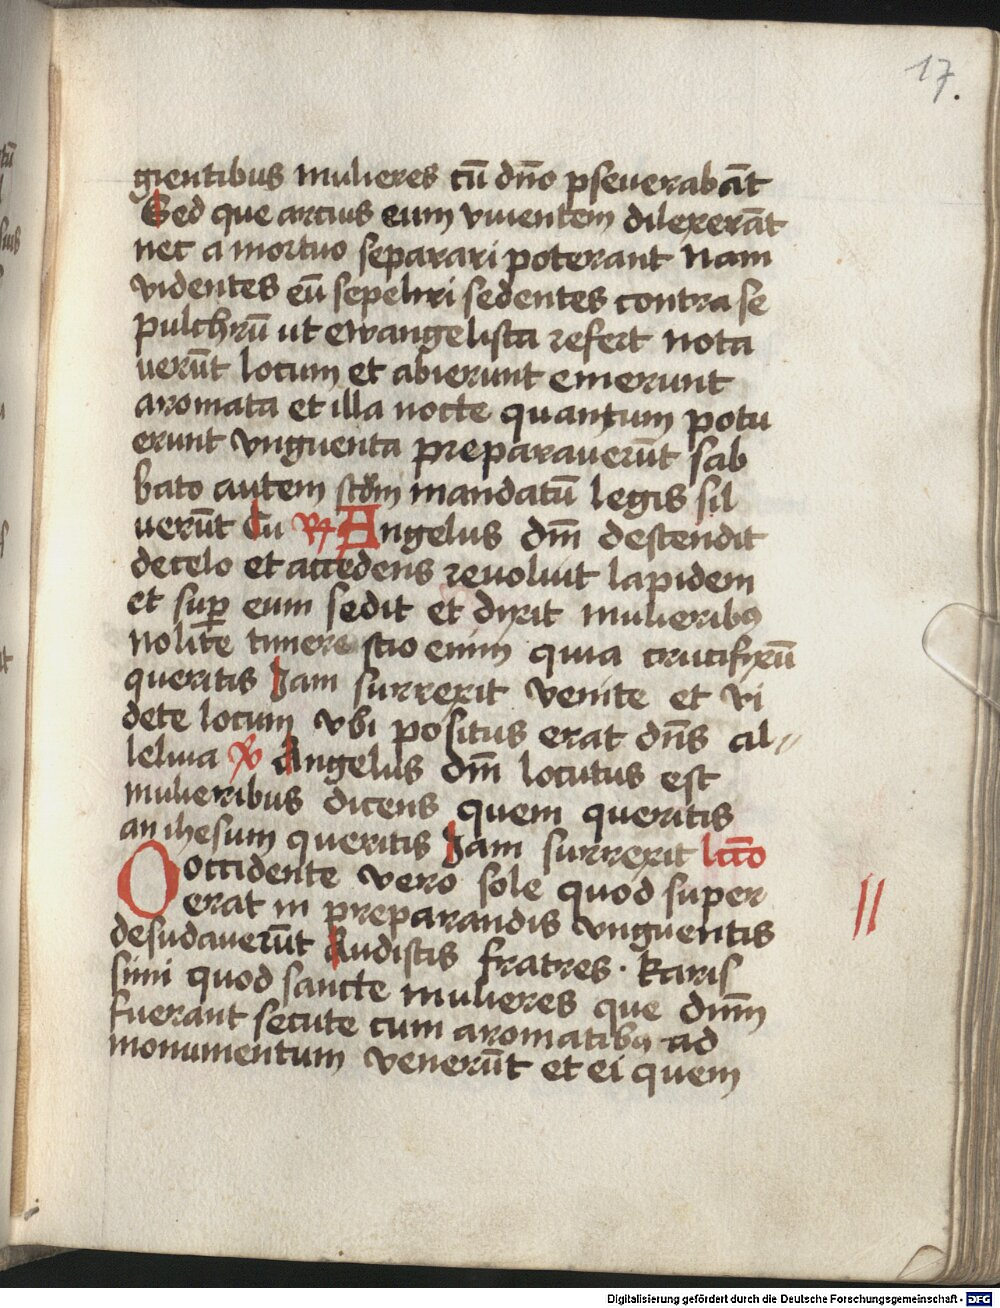 17.
gientibus mulieres cū dn̄o pseuerabāt
Sed que arcius eum viuentem dilexerāt
nec a mortuo separari poterant Nam
videntes eū sepeliri sedentes contra se
pulchrū ut ewangelista refert nota
uerūt locum et abierunt emerunt
aromata et illa nocte quantum potu
erunt vnguenta preparauerūt sab
bato autem scd̄m mandatū legis sil
uerūt Cu R Angelus dm̄ descendit
de celo et accedens reuoluit lapidem
et sup̄ eum sedit et dixit mulieribꝯ
Nolite timere scio enim quia crucifixū
queritis Jam surrexit venite et vi
dete locum vbi positus erat dn̄s al//
leluia V Angelus dm̄ locutus est
mulieribus dicens quem queritis
an ihesum queritis Jam surrexit lcc̄o
Ooccidente vero sole quod super
erat in preparandis vnguentis
II
desudauerūt Audistis fratres · karis
simi quod sancte mulieres que dnm̄
fuerant secute cum aromatibꝯ ad
monumentum venerūt et ei quem
Digitalisierung gefördert durch die Deutsche Forschungsgemeinschaft - DFG